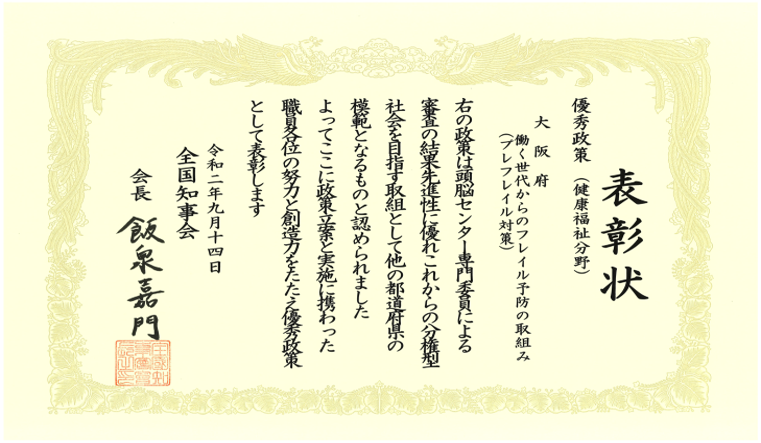 表彰状
優秀政策（健康福祉分野）
大阪府
働く世代からのフレイル予防の取組み
（プレフレイル対策）
右の政策は頭脳センター専門委員による
審査の結果先進性に優れこれからの分権型
社会を目指す取組として他の都道府県の
模範となるものと認められました
よってここに政策立案と実施に携わった
職員各位の努力と創造力をたたえ優秀政策
として表彰します
令和二年九月十四日
全国知事会
会長 飯泉嘉門